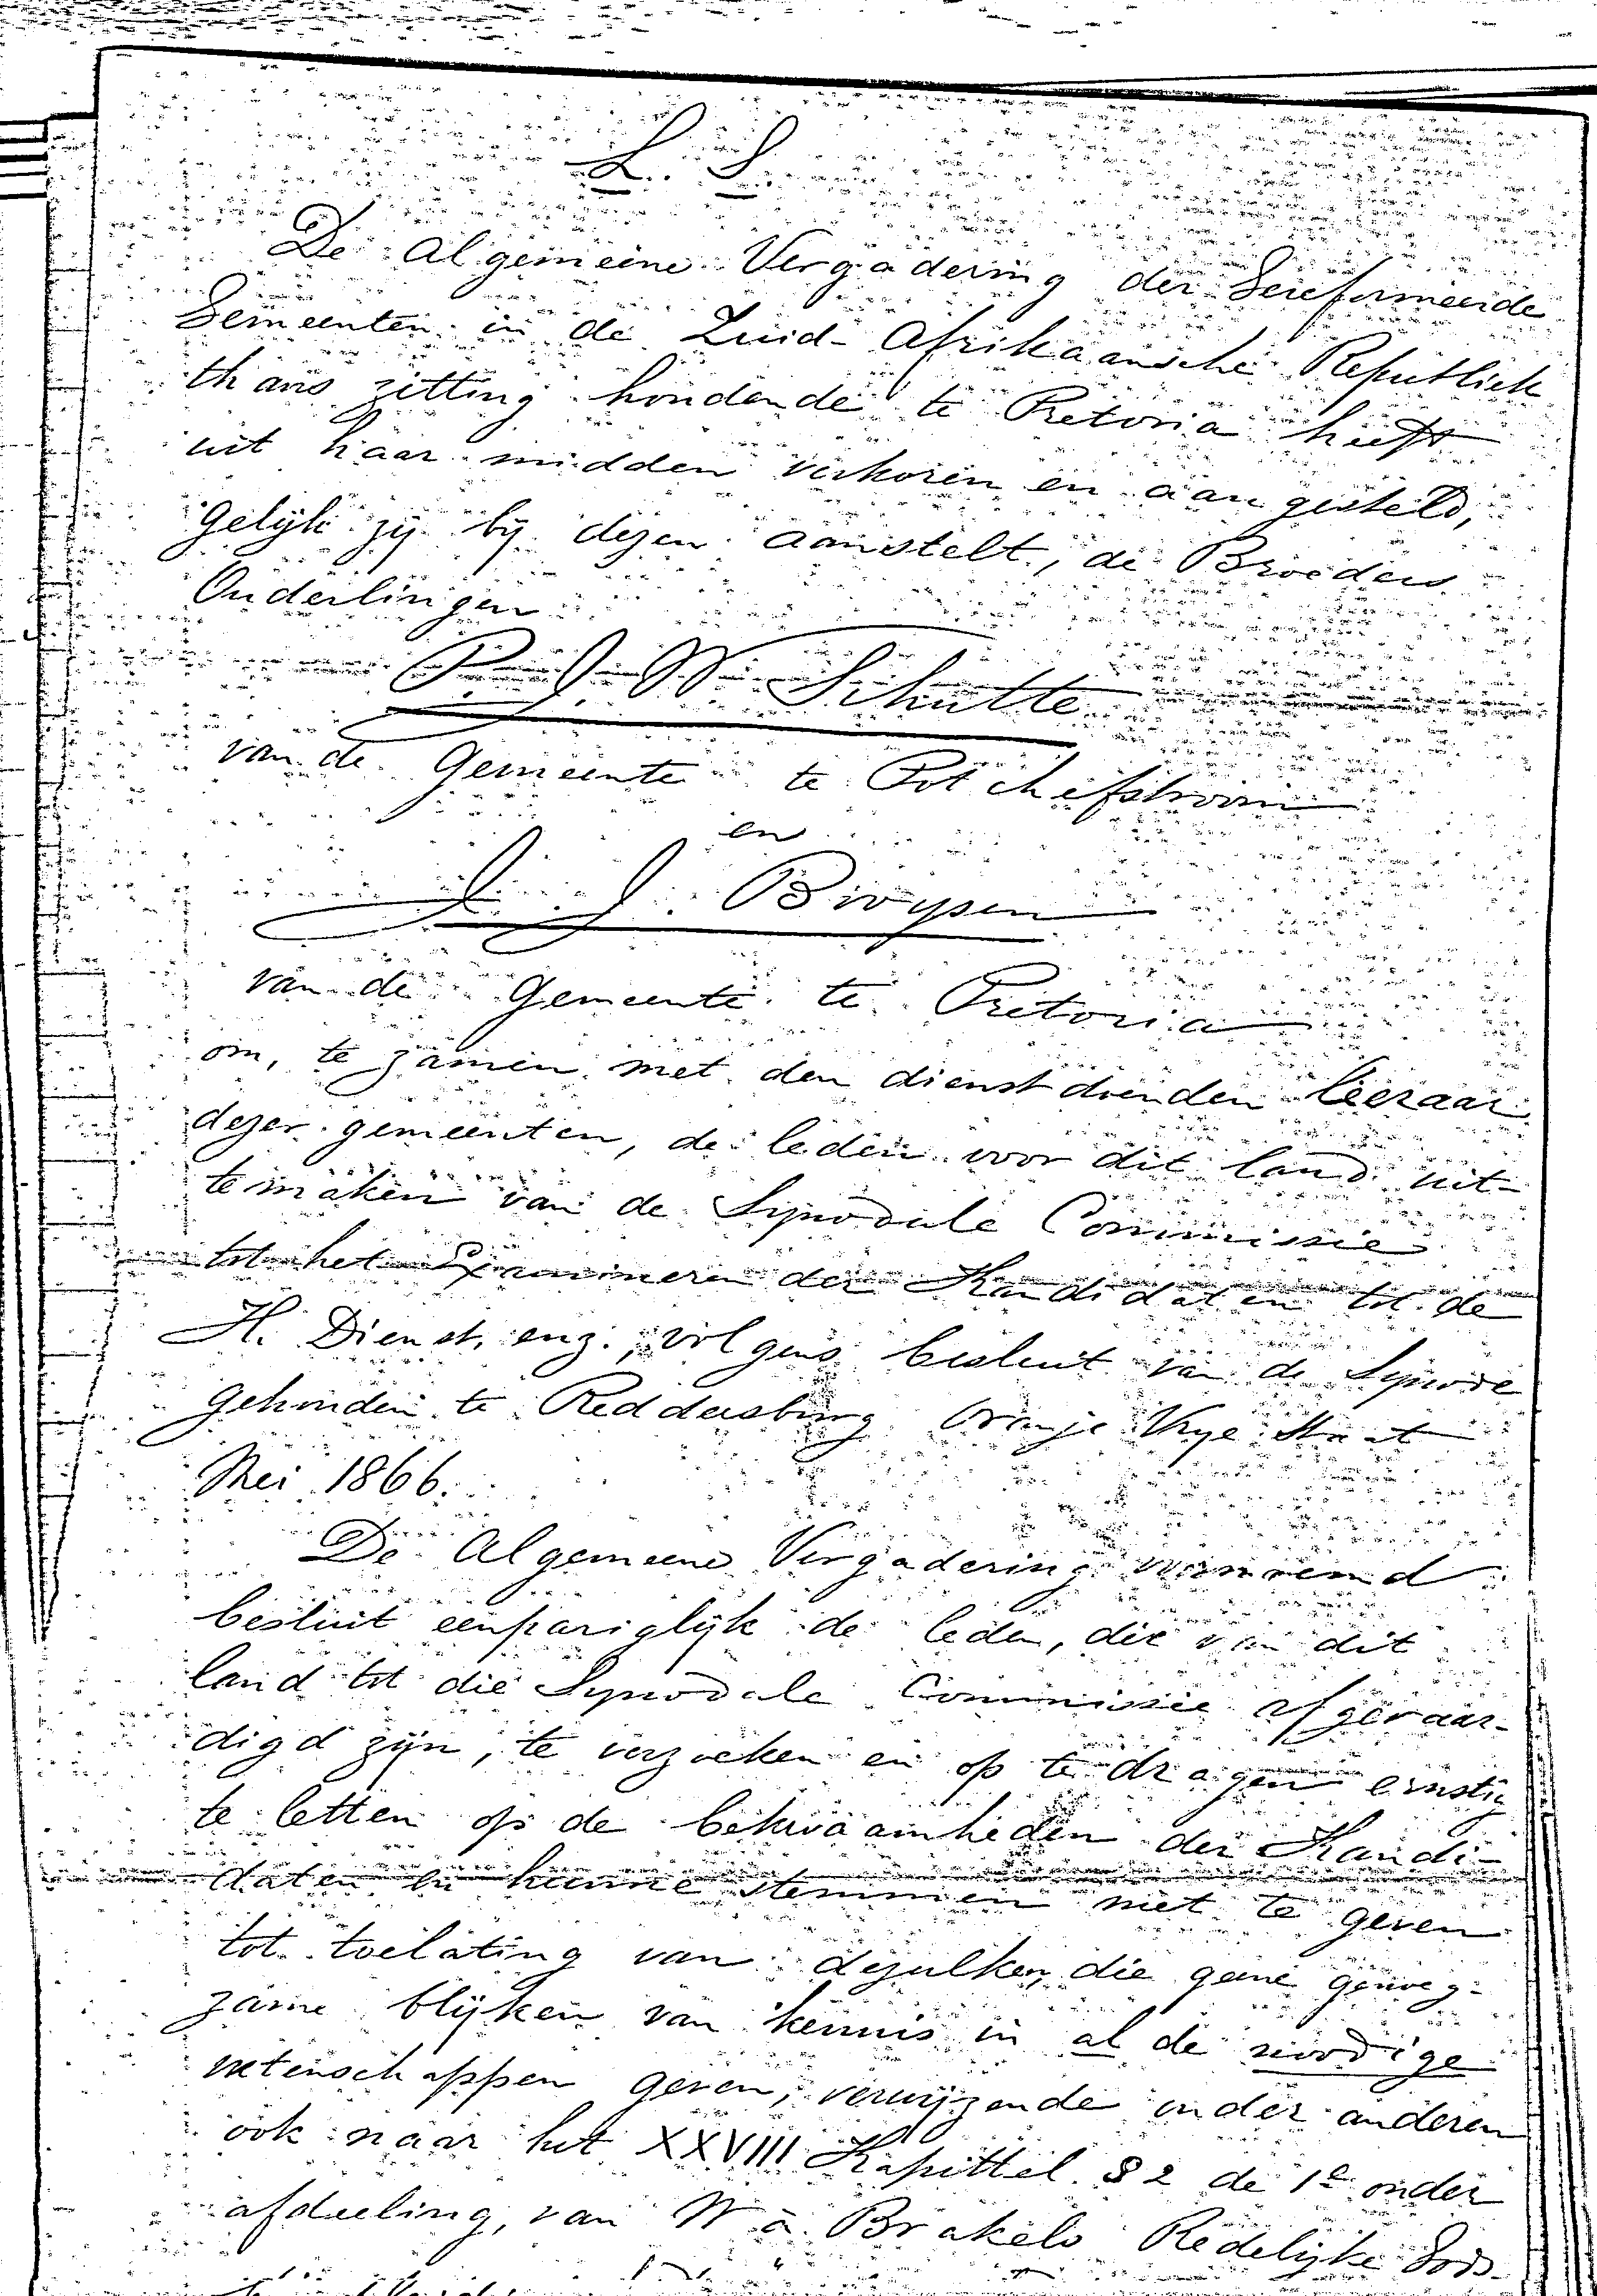 L. S.
De Algemeene Vergadering der Gereformeerde
Gemeenten in de Zuid-Afrikaansche Republiek
thans zitting houdende te Pretoria heeft
uit haar midden verkoren en aangesteld,
Gelijk zij bij dezen aanstelt, de Broeders
Ouderlingen
P. J. W. Schutte
van de Gemeente te Potchefstroom
en
J. J. Booysen
van de Gemeente te Pretoria
om, te zamen met den dienstdoenden leeraar
dezer gemeenten, de leden voor dit land uit-
temaken van de Synodale Commissie
tot het Examineren der Kandidaten tot de
H. Dienst, enz., volgens besluit van de Synode
gehouden te Reddersburg Oranje Vrye Staat
Mei 1866.
De Algemeene Vergadering voornoemd
besluit eenpariglijk de leden, die van dit
land tot die Synodale Commissie afgevaar-
digd zijn, te verzoeken en op te dragen ernstig
te letten op de bekwaamheden der Kandi-
daten en hunne stemmen niet te geven
tot toelating van dezulken, die geene genoeg-
zame blijken van kennis in al de noodige
wetenschappen geven, verwijzende onder anderen
ook naar het XXVIII Kapittel § 2 de 1e onder
afdeeling, van W à Brakels Redelijke Gods-